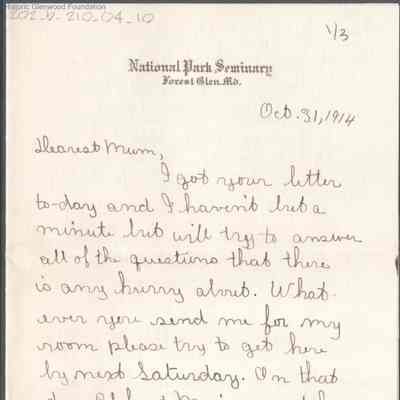 Historic Glenwood Foundation
202-b-210-04-10
1/3
National Park Seminary
Forest Glen, Md.
Oct. 31, 1914
Dearest Mum,
I got your letter
to-day and I haven't but a
minute but will try to answer
all of the questions that there
is any hurry about. What
ever you send me for my
room please try to get here
by next Saturday. On that